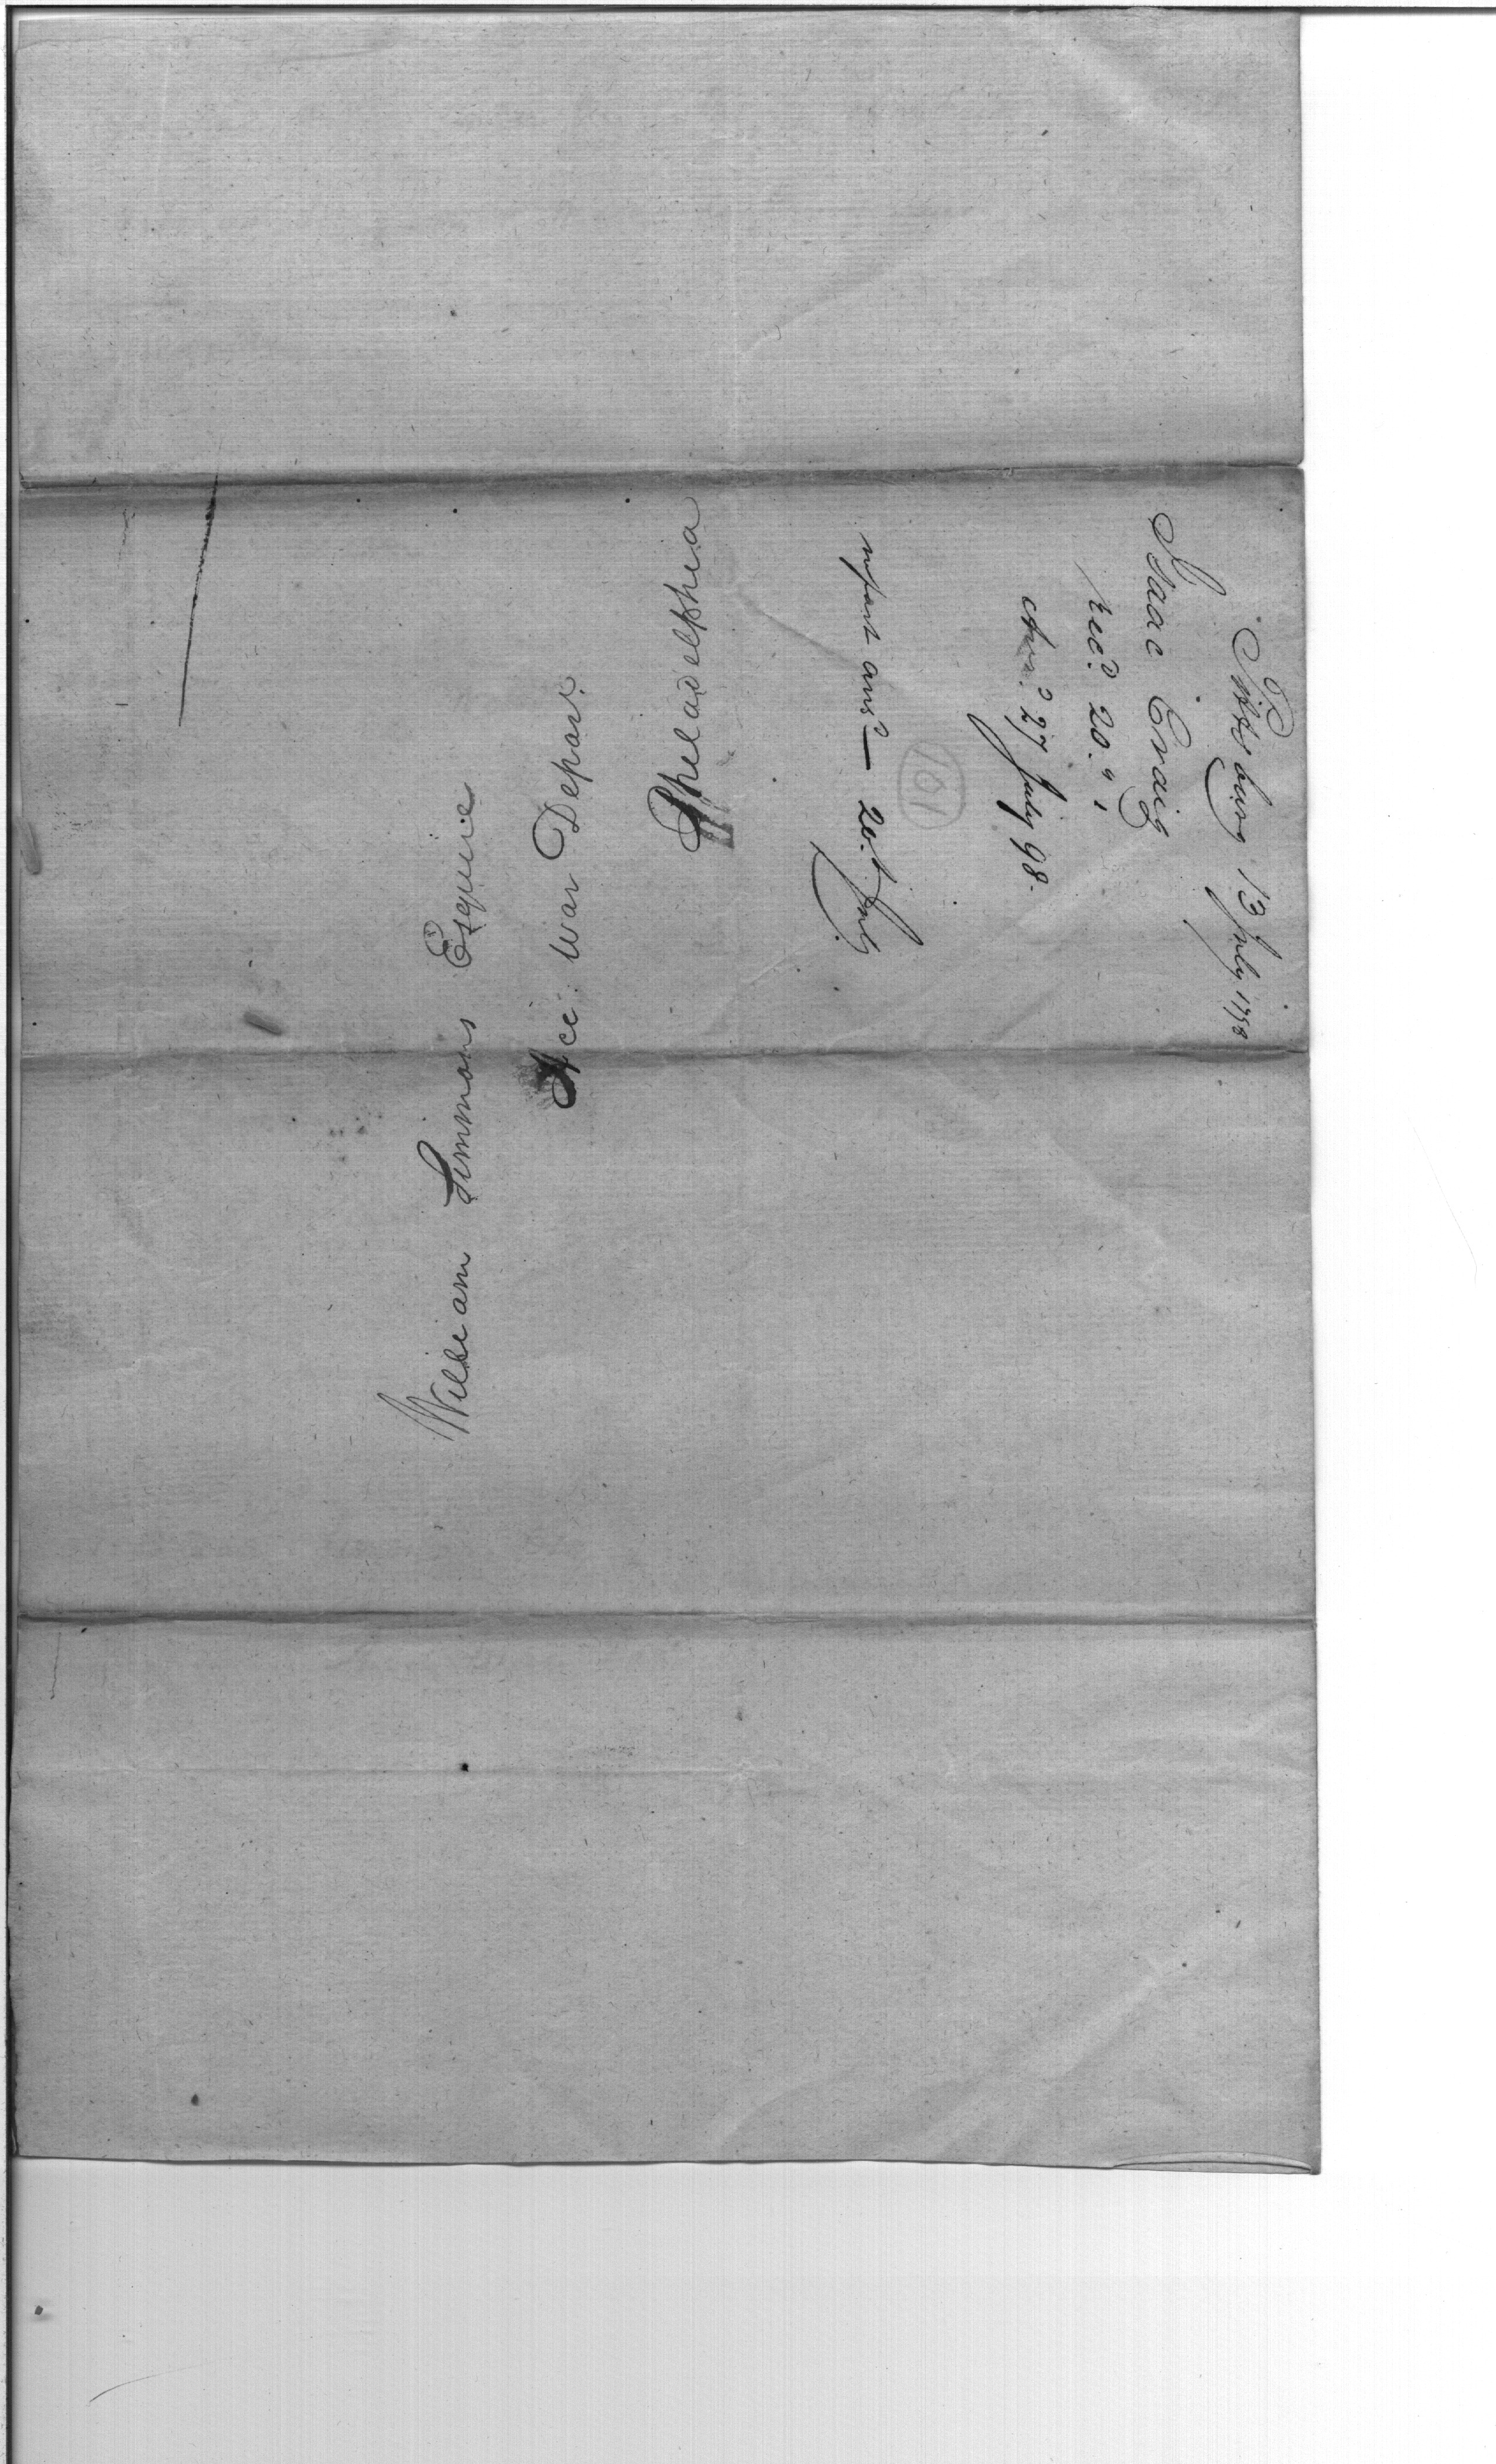 Pittsburg 13 July 1798
Isaac Craig
Recd. 20. "
Ansd. 27 July 98.
101
in part ansd — 20. July
William Simmons Esquire
Acct. War Depart.
Philadelphia